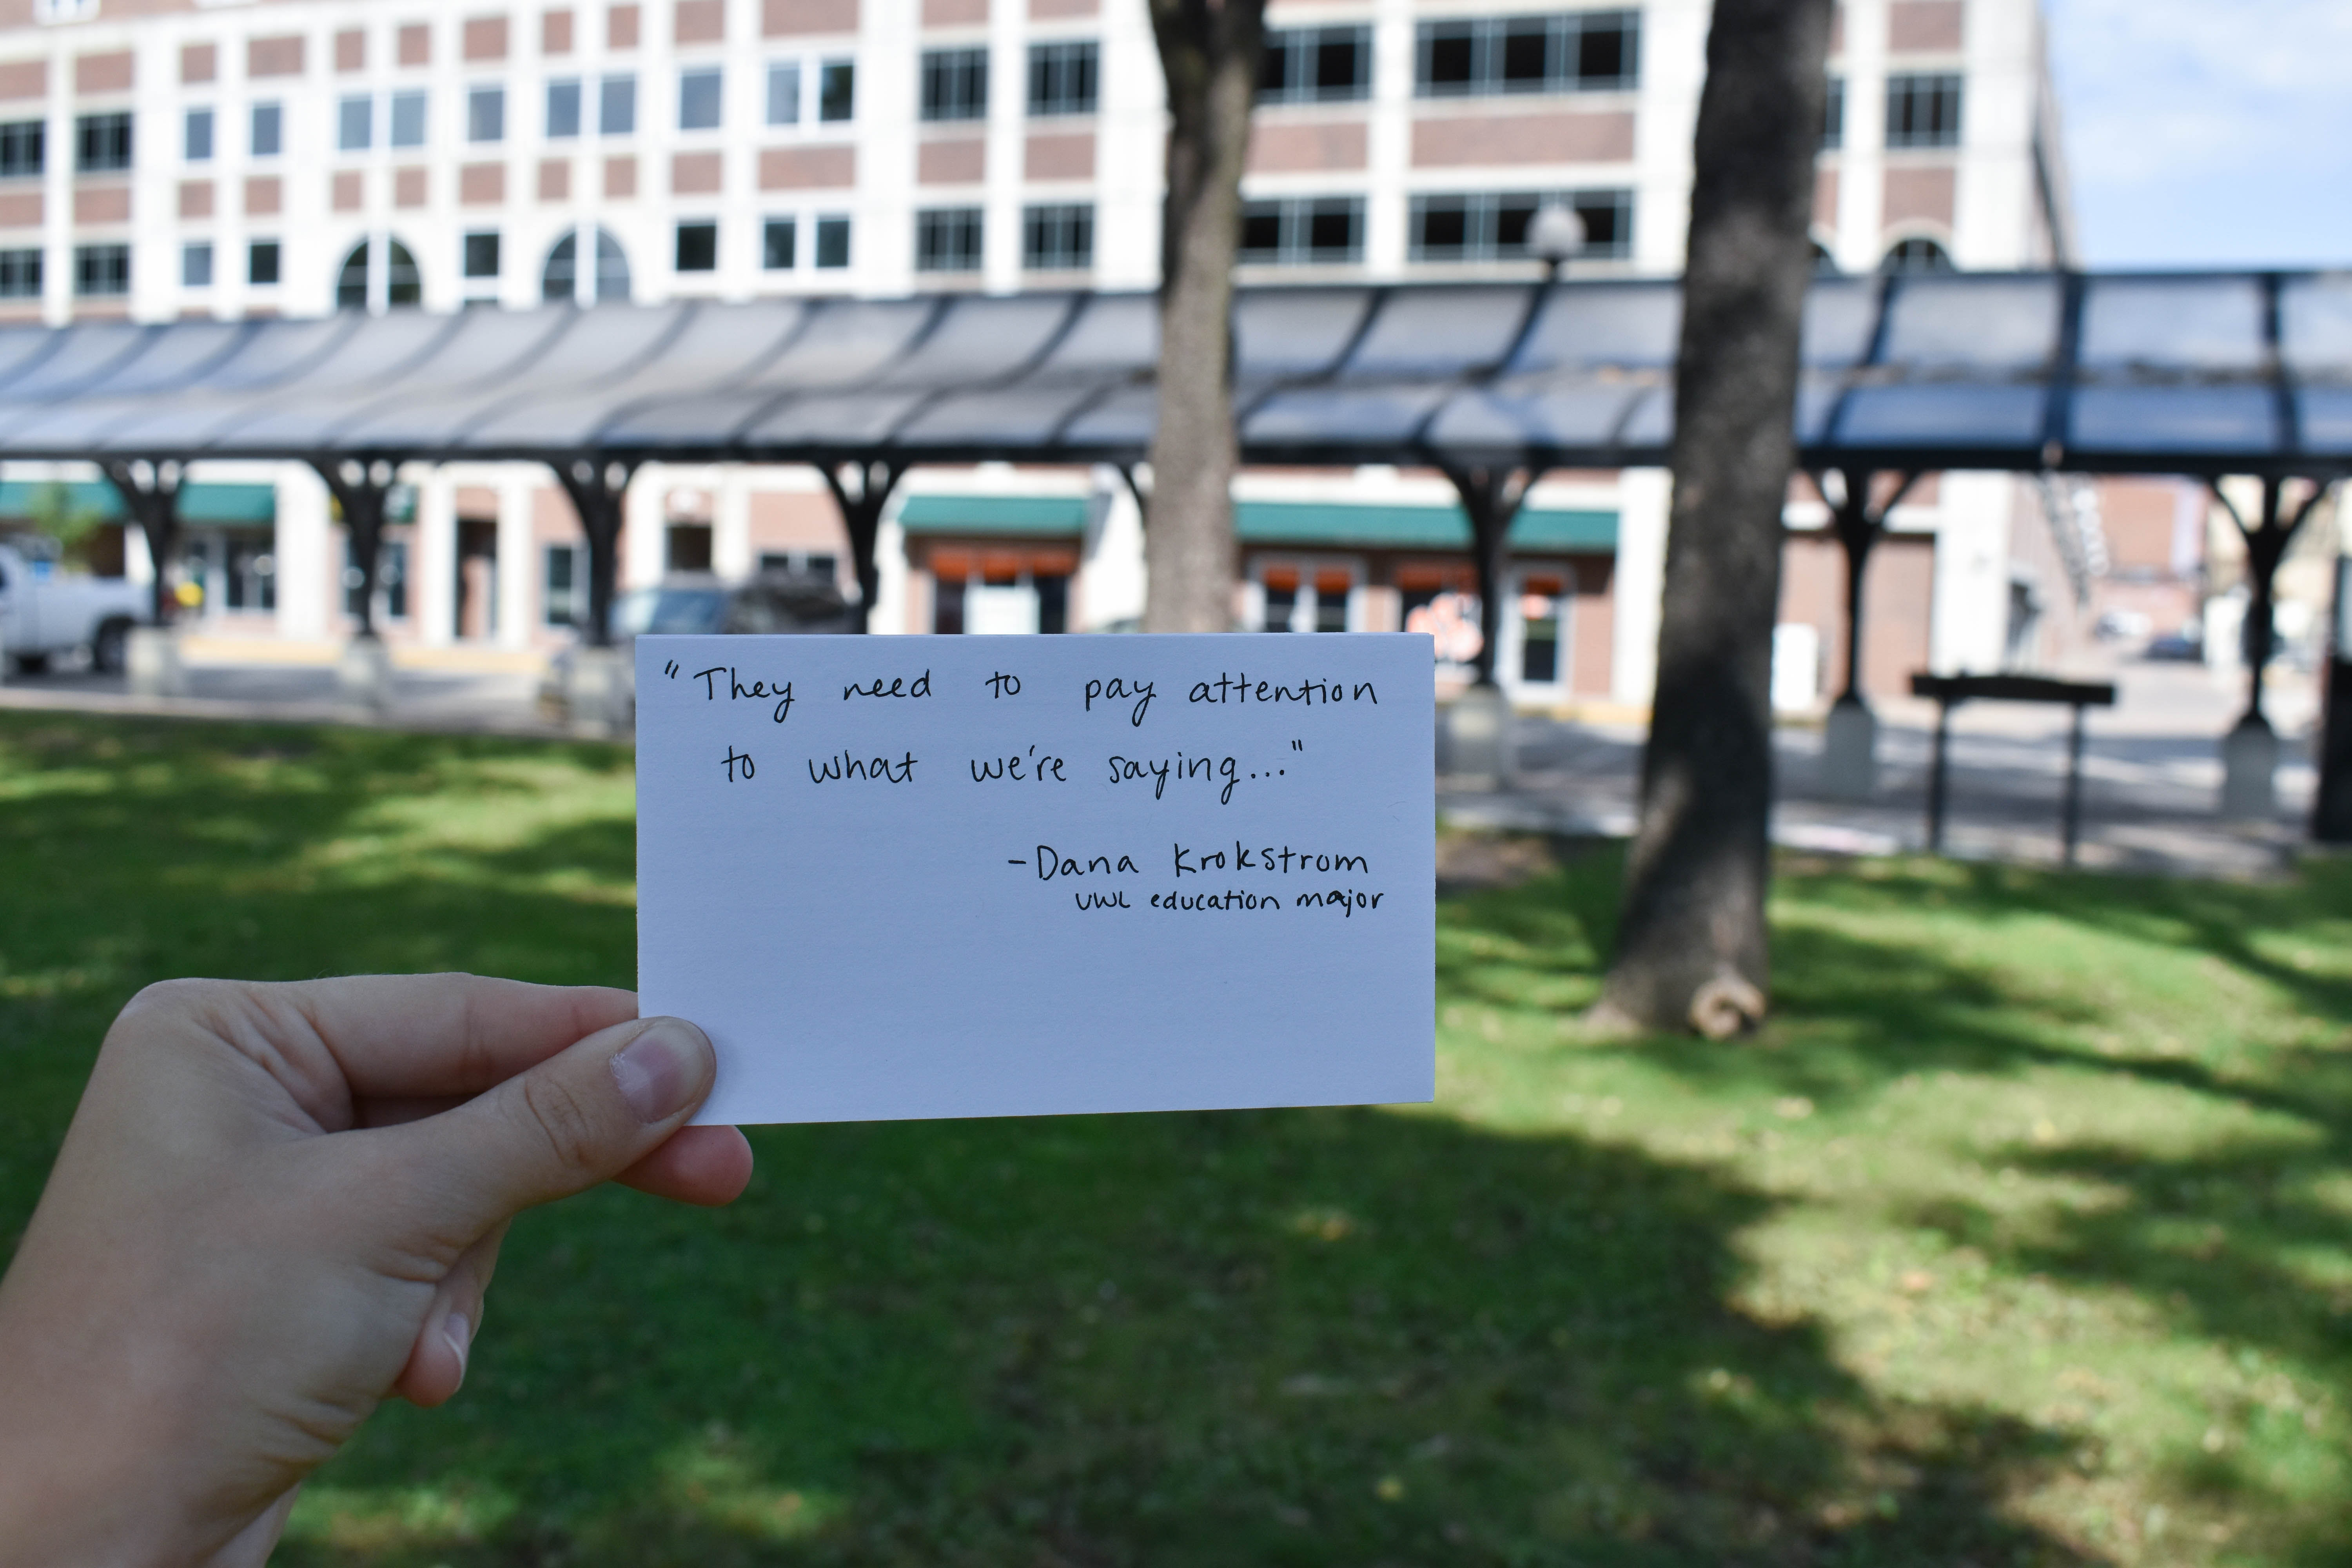 "They need to pay attention
to what we're saying..."
-Dana Krokstrom
UWL education major